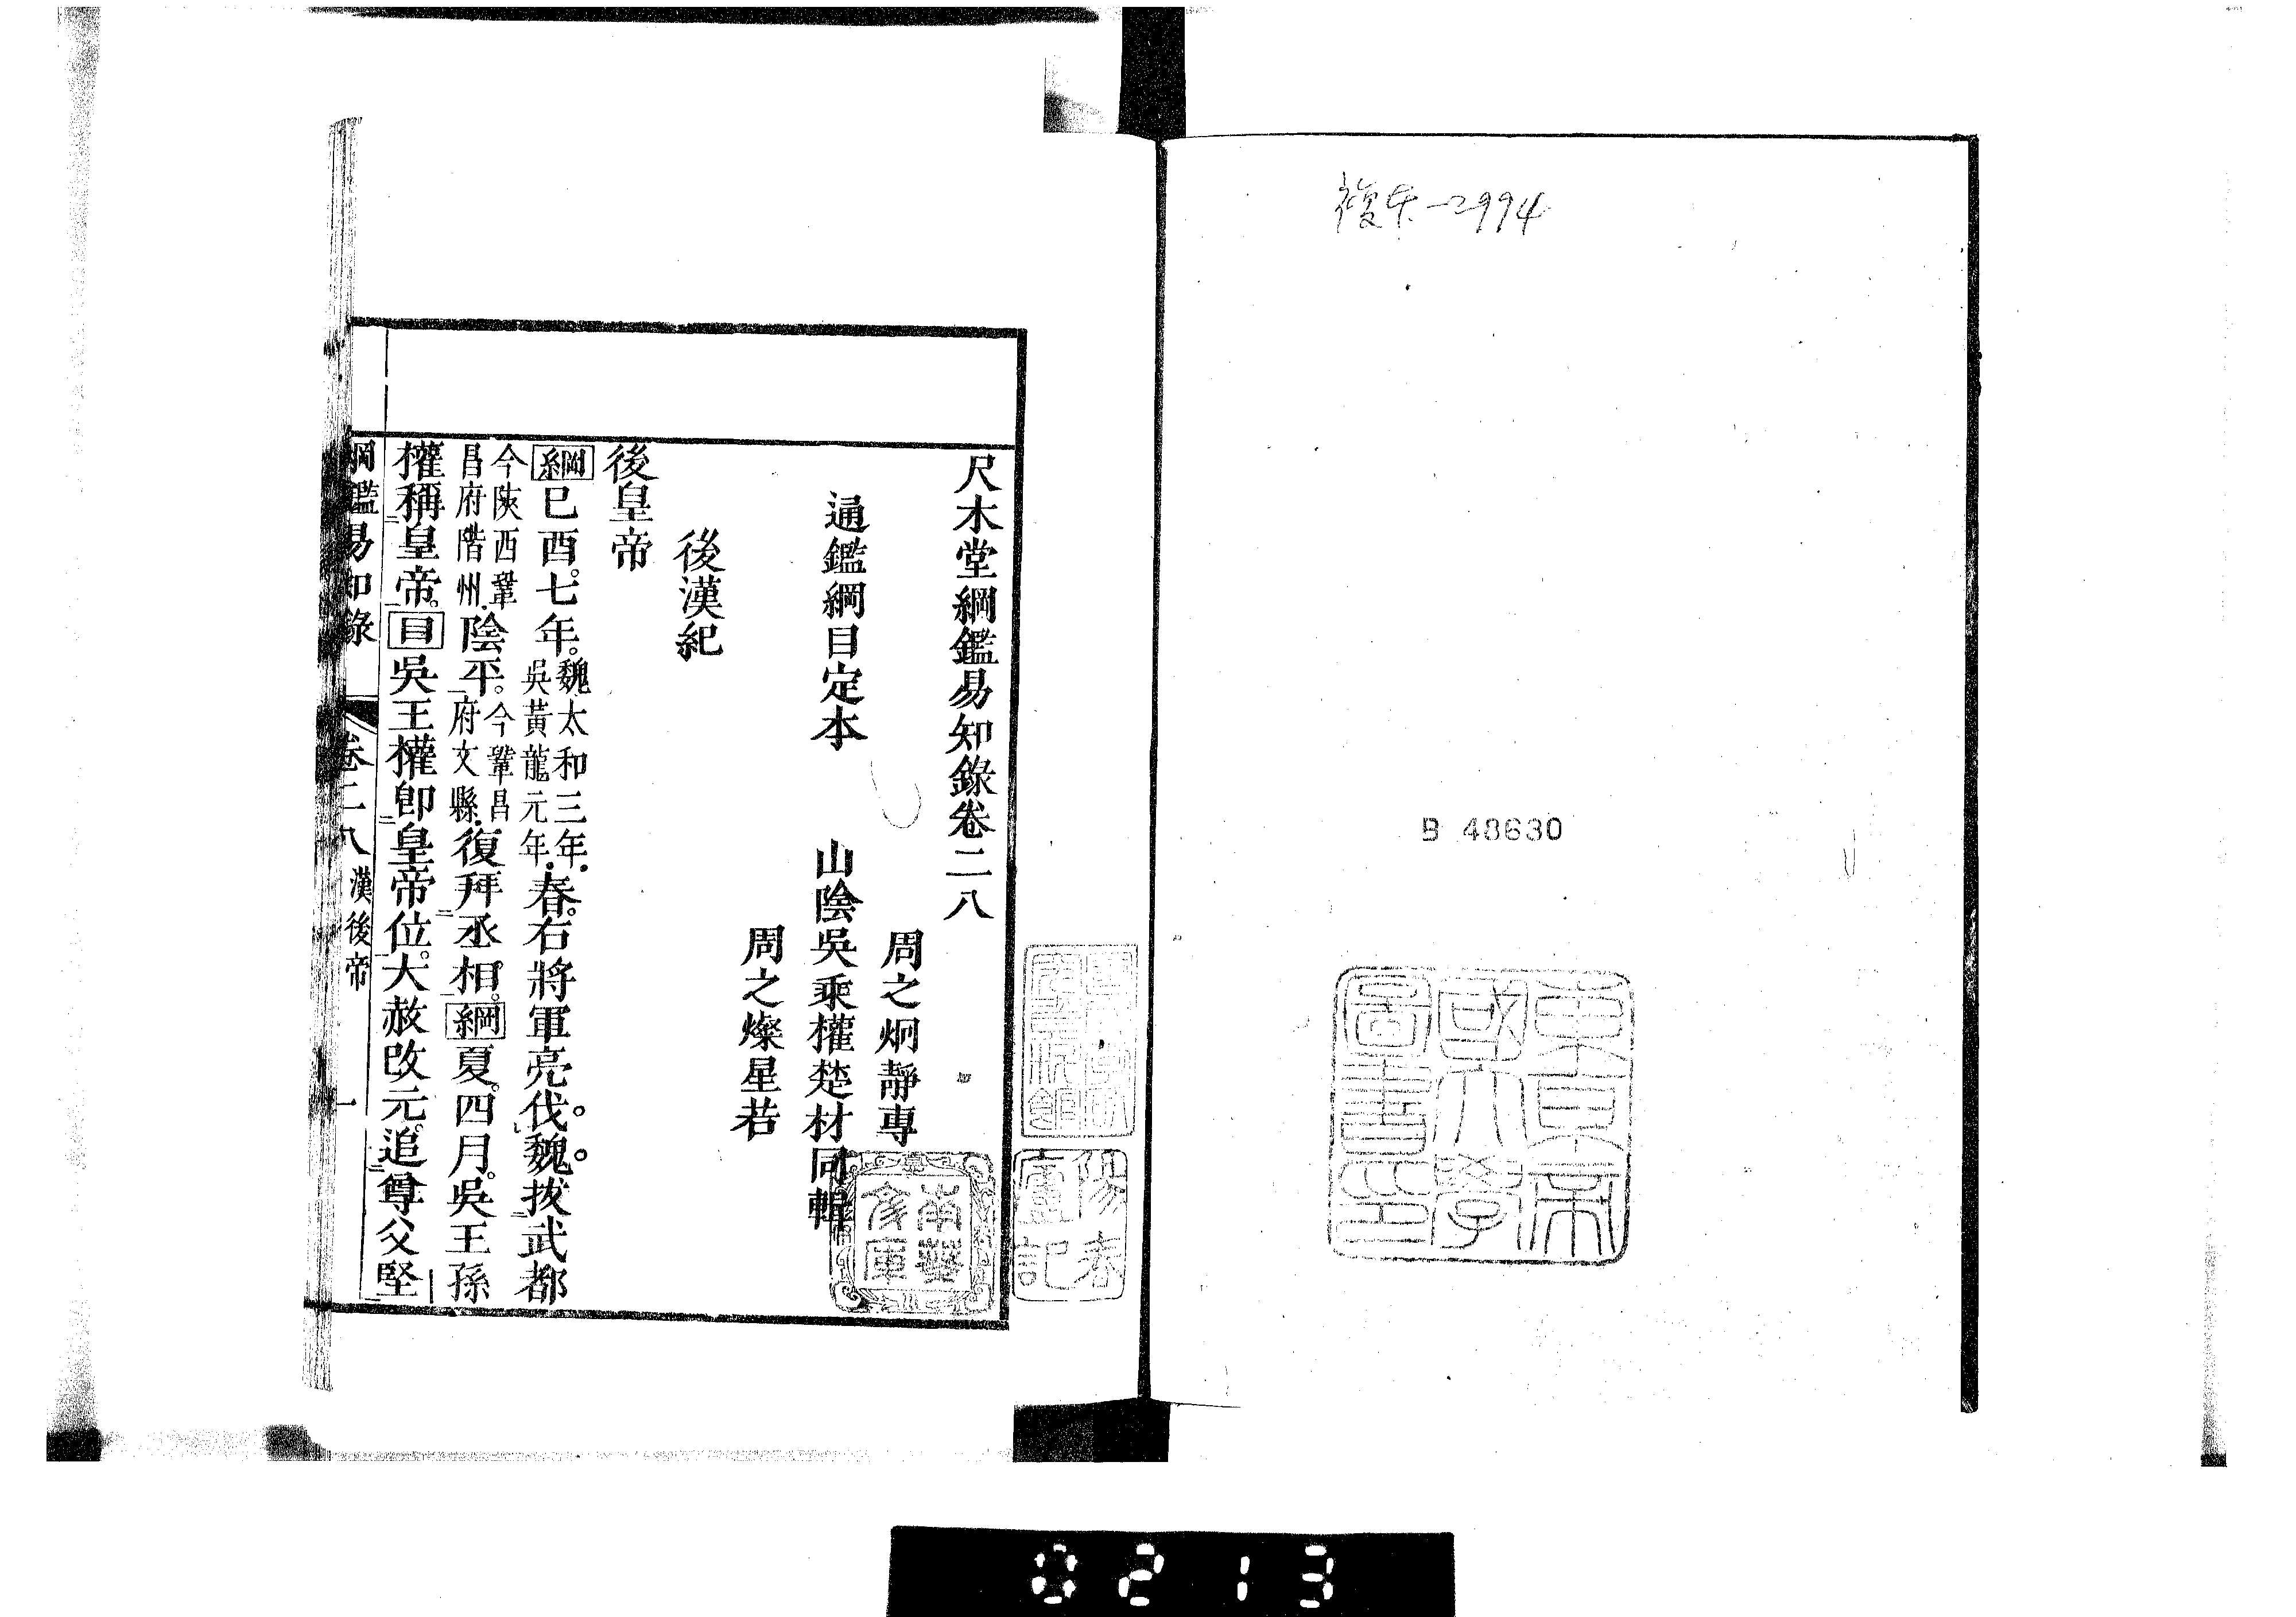 複本-2994
B 48630
東京帝
國大學
圖書印
陽春
廬記
南葵
文庫
尺木堂綱鑑易知錄卷二八
周之炯靜專
通鑑綱目定本　山陰吳乘權楚材同輯
周之燦星若
後漢紀
後皇帝
綱巳酉。七年。魏太和三年。吳黃龍元年。春。右將軍亮伐魏。拔武都
今陝西鞏昌府階州。陰平。今鞏昌府文縣。復拜丞相。綱夏。四月。吳王孫
權稱皇帝。目吳王權卽皇帝位。大赦改元。追尊父堅
綱鑑易知錄　卷二八　漢後帝　一
0213